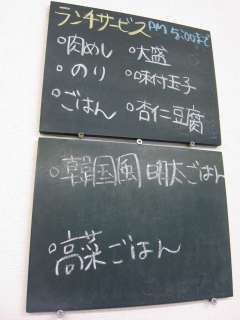 ランチサービス PM 5:00まで
○肉めし ○大盛
○のり ○味付玉子
○ごはん ○杏仁豆腐
○韓国風明太ごはん
○高菜ごはん